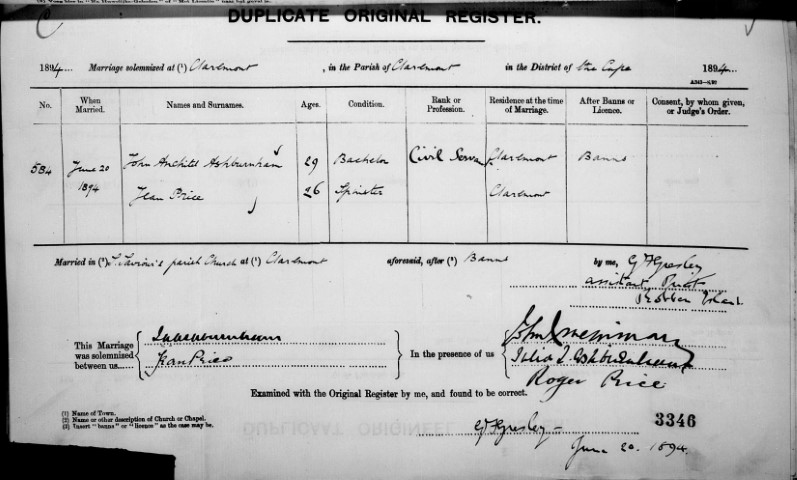 DUPLICATE ORIGINAL REGISTER.
1894 Marriage solemnized at (1) Claremont, in the Parish of Claremont in the District of the Cape 1894
No. When Married. Names and Surnames. Ages. Condition. Rank or Profession. Residence at the time of Marriage. After Banns or Licence. Consent, by whom given, or Judge's Order.
584 June 20 John Anchitel Ashburnham 29 Bachelor Civil Servant Claremont Banns
1894 Jean Price 26 Spinster Claremont
Married in (2) S. Saviour's parish Church at (1) Claremont aforesaid, after (3) Banns by me, G F Gresley
assistant Priest
This Marriage was solemnized between us
J A Ashburnham
Jean Price
In the presence of us
John X Merriman
Julia Ashburnham
Roger Price
Examined with the Original Register by me, and found to be correct.
(1) Name of Town.
(2) Name or other description of Church or Chapel.
(3) Insert "banns" or "licence" as the case may be.
3346
G F Gresley
June 20. 1894.